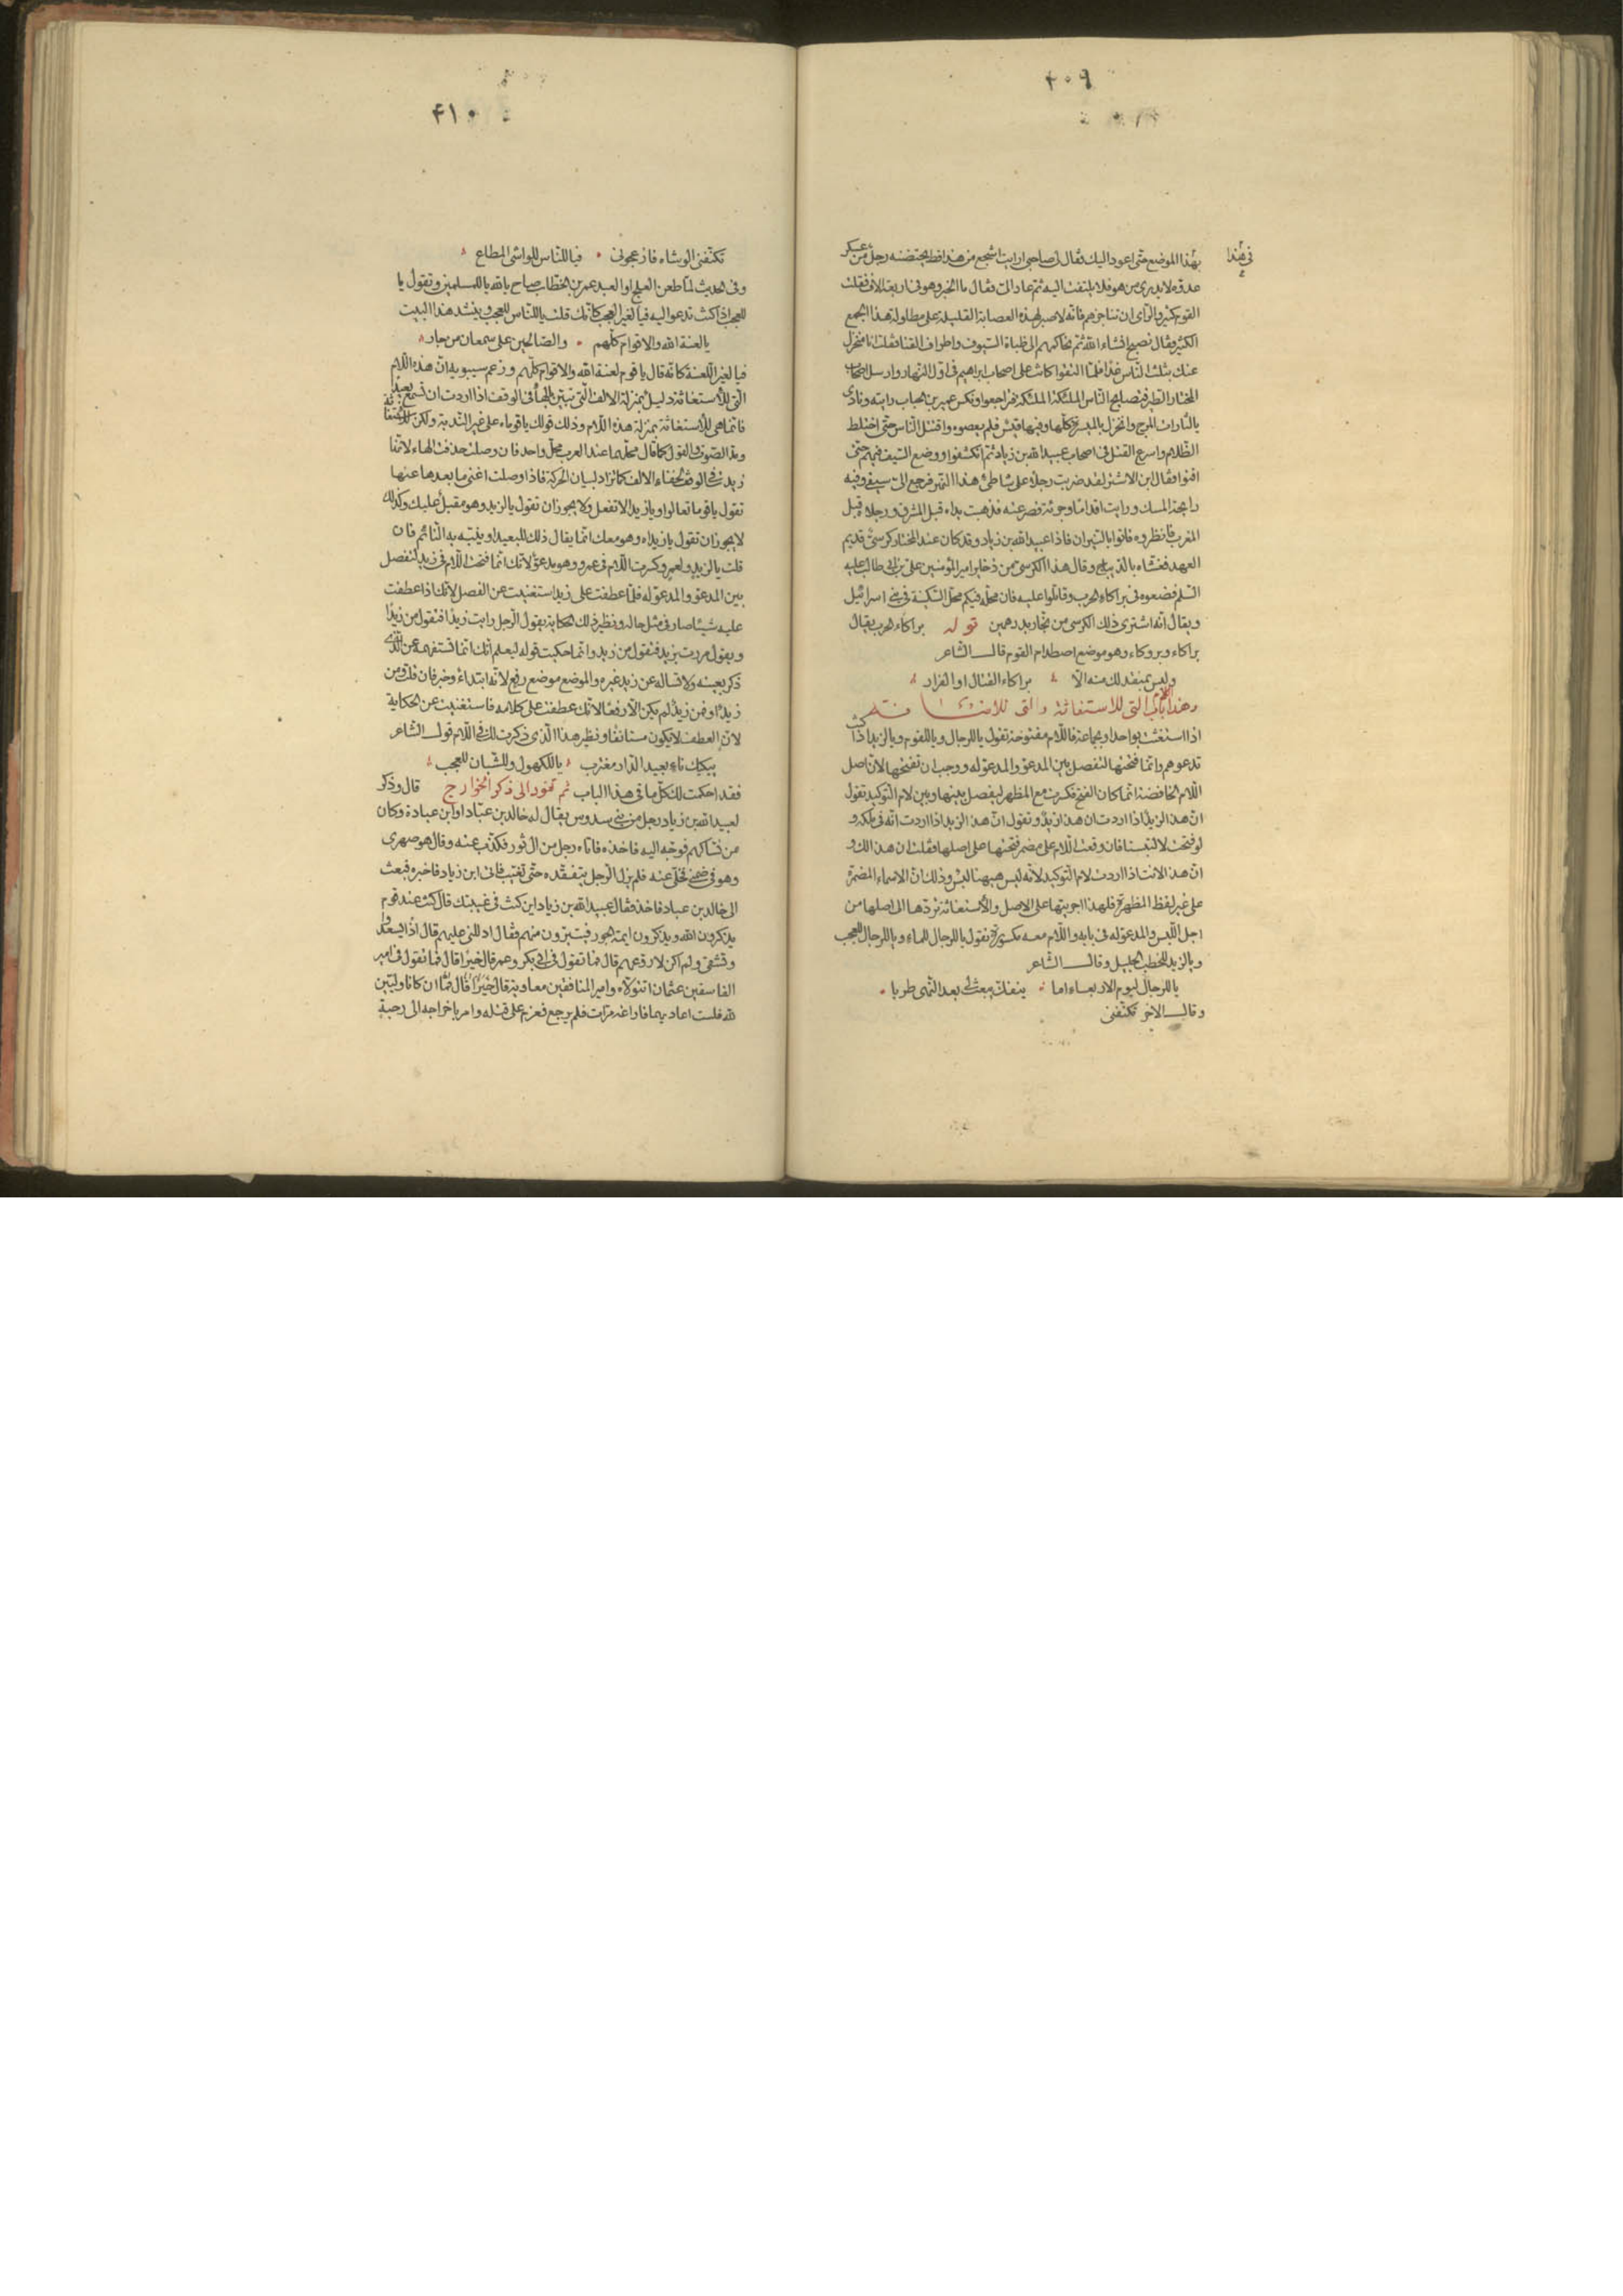 ۴۰۹
في هذا
بهذا الموضع حتى اعود اليك فقال لى صاحبى ارايت اشجع من هذا قط يحتضنه رجل من عسكر
عدوه لا يدرى من هو فلا يلتفت اليه ثم عاد الىّ فقال ما الخبر وهو فى اربعة الاف فقلت
القوم كثير والراى ان تناجزهم فانه لا صبر لهذه العصابة القليلة على مطاولة هذا الجمع
الكثير وقال نصبح انشاء الله ثم نحاكمهم الى ظباة السيوف واطراف القنا فقلت انا منخزل
عنك بثلث الناس غدا فلما التقوا كانت على اصحاب ابراهيم فى اول النهار وارسل اصحاب
المختار الطير فتصايح الناس الملئكة الملئكة فتراجعوا ونكس عمير بن الحباب رايته ونادى
يالثارات المرج وانخزل بالميسرة كلها وفيها قيس فلم يعصوه واقتتل الناس حتى اختلط
الظلام واسرع القتل فى اصحاب عبيد الله بن زياد ثم انكشفوا ووضع السيف فيهم حتى
افنوا فقال ابن الاشتر لقد ضربت رجلا على شاطئ هذا النهر فرجع الىّ سيفى وفيه
رايحة المسك ورايت اقداما وجرئة فصرعته فذهبت يداه قبل المشرق ورجلاه قبل
المغرب فانظروه فاتوا بالنيران فاذا عبيد الله بن زياد وقد كان عند المختار كرسىّ قديم
العهد فغشاه بالديباج وقال هذا الكرسى من ذخاير امير المؤمنين على بن ابى طالب عليه
السلم فضعوه فى براكاء الحرب وقاتلوا عليه فان محله فيكم محل السكينة فى بنى اسرائيل
ويقال انه اشترى ذلك الكرسى من نجار بدرهمين قوله براكاء الحرب يقال
براكاء وبروكاء وهو موضع اصطدام القوم قال الشاعر
وليس بمنقذ لك منه الّا براكاء القتال او الفرار
وهذا باب اللام التى للاستغاثة والتى للاضافة
اذا استغثت بواحد او بجماعة فاللام مفتوحة تقول ياللرجال وياللقوم ويالزيد اذا كنت
تدعوهم وانما فتحتها لتفصل بين المدعو والمدعو له ووجب ان تفتحها لان اصل
اللام الخافضة انما كان الفتح فكسرت مع المظهر ليفصل بينها وبين لام التوكيد تقول
ان هذا لزيدٌ اذا اردت ان هذا زيدٌ وتقول ان هذا لزيد اذا اردت انه فى ملكه و
لو فتحت لالتبستا فان وقعت اللام على مضمر فتحتها على اصلها فقلت ان هذا لك و
ان هذا لانت اذا اردت لام التوكيد لانه ليس ههنا لبس وذلك ان الاسماء المضمرة
على غير لفظ المظهرة فلهذا اجريتها على الاصل والاستغاثة تردّها الى اصلها من
اجل اللبس والمدعو له فى بابه واللام معه مكسورة تقول ياللرجال للماء وياللرجال للعجب
ويالزيد للخطب الجليل وقال الشاعر
ياللرجال ليوم الاربعاء اما ينفك يبعث لى بعد النهى طربا
وقال الاخر تكنّفنى
۴۱۰
تكنّفنى الوشاه فازعجونى فياللناس للواشى المطاع
وفى الحديث لما طعن العلج او العبد عمر بن الخطاب صاح يا لله ياللمسلمين وتقول يا
للعجب اذا كنت تدعو اليه فيا لغير العجب كانك قلت ياللناس للعجب وينشد هذا البيت
يالعنة الله والاقوام كلهم والصالحين على سمعان من جار
فيا لغير اللعنة كانه قال يا قوم لعنة الله والاقوام كلهم وزعم سيبويه ان هذه اللام
التى للاستغاثة دليل بمنزلة الالف التى تبيّن بالهاء فى الوقف اذا اردت ان تسمع بعيدا
فانما هى للاستغاثة بمنزلة هذه اللام وذلك قولك يا قوماه على غير الندبة ولكن للاستغاثة
ومدّ الصوت والقول كما قال محلهما عند العرب محل واحد فان وصلت حذفت الهاء لانها
زيدت فى الوقف لخفاء الالف كما تزاد لبيان الحركة فاذا وصلت اغنى ما بعدها عنها
تقول يا قوما تعالوا ويا زيدا لا تفعل ولا يجوز ان تقول يالزيد وهو مقبل عليك وكذلك
لا يجوز ان تقول يا زيداه وهو معك انما يقال ذلك للبعيد او ينبّه به النائم فان
قلت يالزيد ولعمرو كسرت اللام فى عمرو وهو مدعوّ لانك انما فتحت اللام فى زيد لتفصل
بين المدعو والمدعو له فلما عطفت على زيد استغنيت عن الفصل لانك اذا عطفت
عليه شيئا صار فى مثل حاله ونظير ذلك الحكاية يقول الرجل رايت زيدا فتقول من زيدًا
ويقول مررت بزيد فتقول من زيد وانما حكيت قوله ليعلم انك انما تستفهمه عن الذى
ذكر بعينه ولا تساله عن زيد غيره والموضع موضع رفع لانه ابتداء وخبر فان قلت ومن
زيدٌ او فمن زيدٌ لم يكن الّا رفعا لانك عطفت على كلامه فاستغنيت عن الحكاية
لان العطف لا يكون مستانفا ونظير هذا الذى ذكرت لك فى اللام قول الشاعر
يبكيك ناء بعيد الدار مغترب ياللكهول وللشبان للعجب
فقد احكمت لك كل ما فى هذا الباب ثم نعود الى ذكر الخوارج قال وذكر
لعبيد الله بن زياد رجل من بنى سدوس يقال له خالد بن عباد او ابن عبادة وكان
من نسّاكهم فوجه اليه فاخذه فاتاه رجل من ال ثور فكذب عنه وقال هو صهرى
وهو فى ضمنى فخلى عنه فلم يزل الرجل يتفقده حتى تغيب فاتى ابن زياد فاخبره فبعث
الى خالد بن عباد فاخذ فقال عبيد الله بن زياد اين كنت فى غيبتك قال كنت عند قوم
يذكرون الله ويذكرون ايمة الجور فيتبرّون منهم فقال ادللنى عليهم قال اذا يسعدوا
وتشقى ولم اكن لاروعهم قال فما تقول فى ابى بكر وعمر قال خيرا قال فما تقول فى امير
الفاسقين عثمان اتتولاه وامير المنافقين معاوية قال خيرا قال ان كانا وليّين
لله فلست اعاديهما فاراغه مرات فلم يرجع فعزم على قتله وامر باخراجه الى رحبة